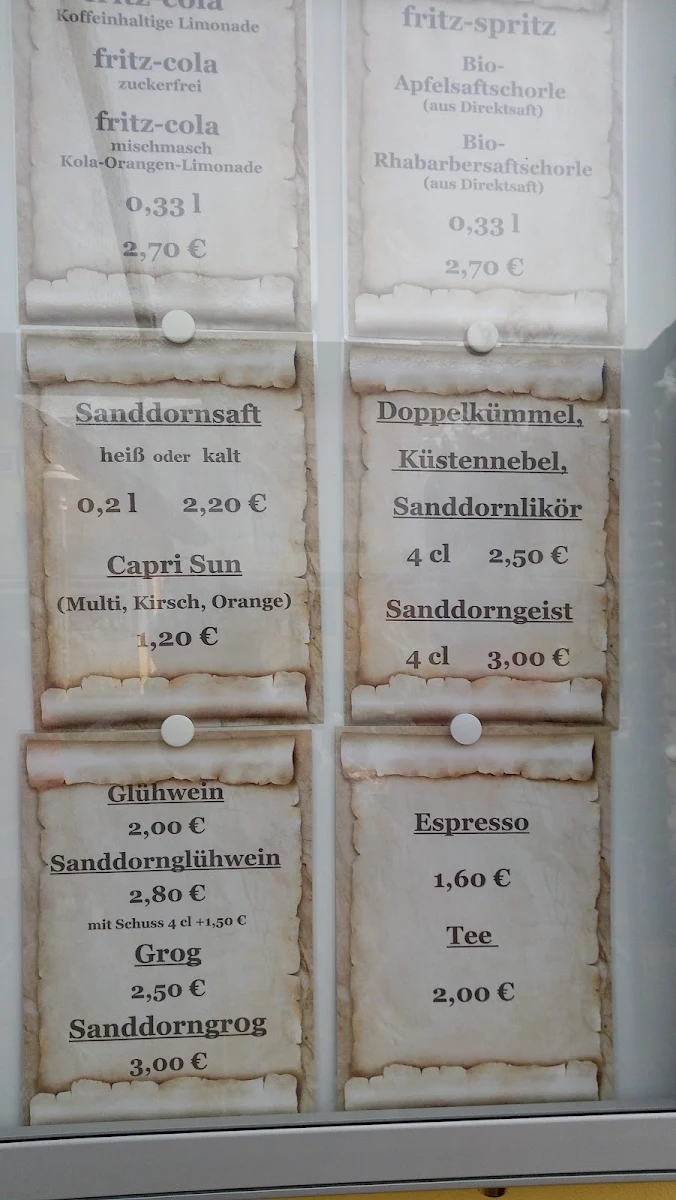 fritz-cola
Koffeinhaltige Limonade
fritz-cola
zuckerfrei
fritz-cola
mischmasch
Kola-Orangen-Limonade
0,33 l
2,70 €
fritz-spritz
Bio-
Apfelsaftschorle
(aus Direktsaft)
Bio-
Rhabarbersaftschorle
(aus Direktsaft)
0,33 l
2,70 €
Sanddornsaft
heiß oder kalt
0,2 l 2,20 €
Capri Sun
(Multi, Kirsch, Orange)
1,20 €
Doppelkümmel,
Küstennebel,
Sanddornlikör
4 cl 2,50 €
Sanddorngeist
4 cl 3,00 €
Glühwein
2,00 €
Sanddornglühwein
2,80 €
mit Schuss 4 cl +1,50 €
Grog
2,50 €
Sanddorngrog
3,00 €
Espresso
1,60 €
Tee
2,00 €